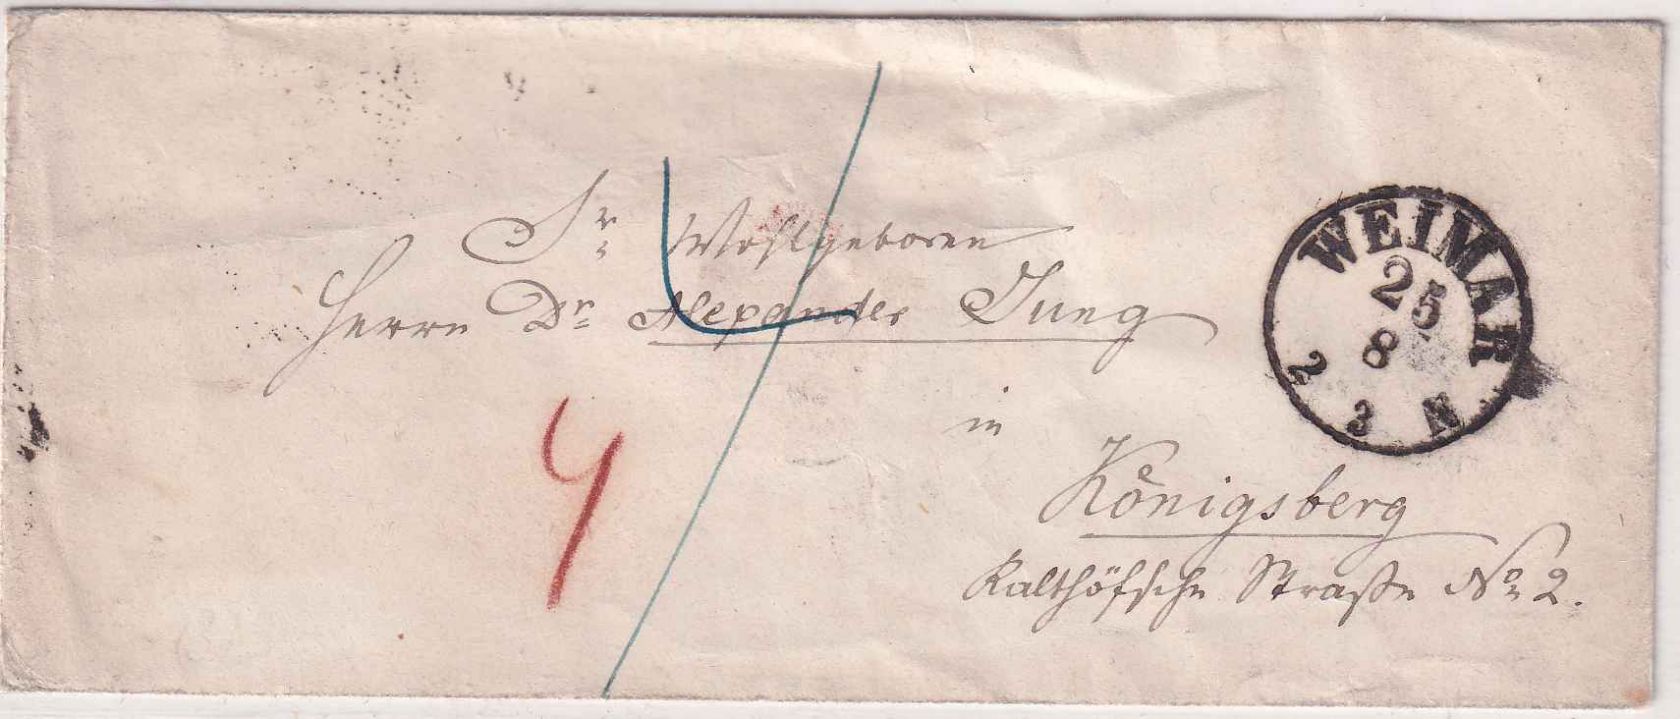 Sr Wohlgeboren
Herrn Dr Alexander Jung
in
Königsberg
Kalthöfsche Straße No 2.
WEIMAR
25
8
2 3 N
4